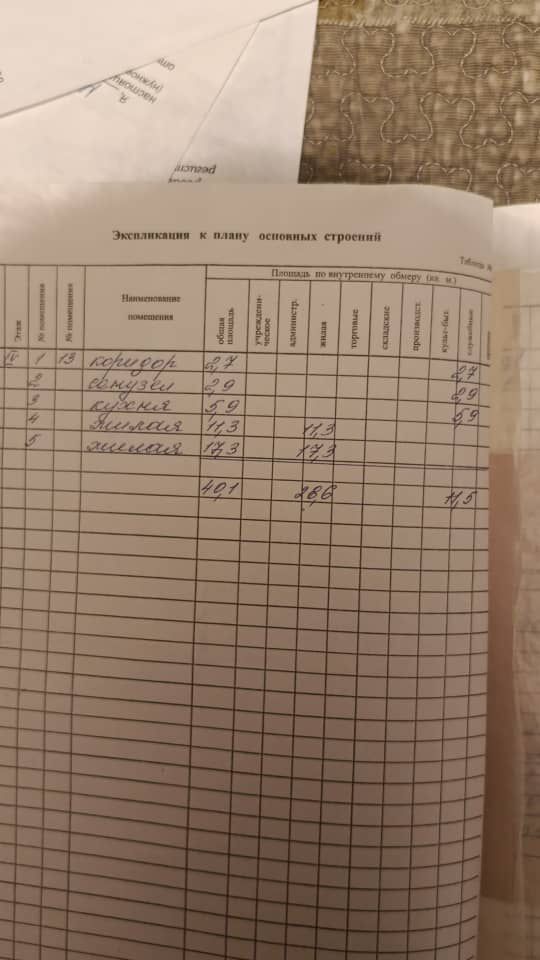 Я,
настоящ
(нужное
Экспликация к плану основных строений
Таблица №
Этаж
№ помещения
№ помещения
Наименование помещения
Площадь по внутреннему обмеру (кв. м.)
общая площадь
учреждени-ческое
администр.
жилая
торговые
складские
производст.
культ-быт.
служебные
IV 1 13 коридор 2,7 2,7
2 санузел 2,9 2,9
3 кухня 5,9 5,9
4 жилая 11,3 11,3
5 жилая 17,3 17,3
40,1 28,6 11,5